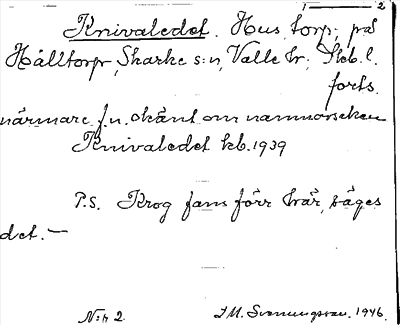 1 — 2
Knivaledet. Hus, torp, på
Hälltorp, Skarke s:n, Valle hr, Skb. l.
forts.
närmare f.n. okänt om namnorsaken
Knivaledet kb. 1939
P.S. Krog fans förr här, säges
det. —
N:r 2. J M. Svenungsson. 1946.